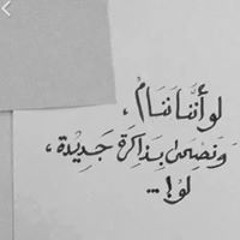 لو أنَّنا نَنَامُ ،
وَنَصحىٰ بِذاكِرَة جَدِيْدة ،
لوْ! ...